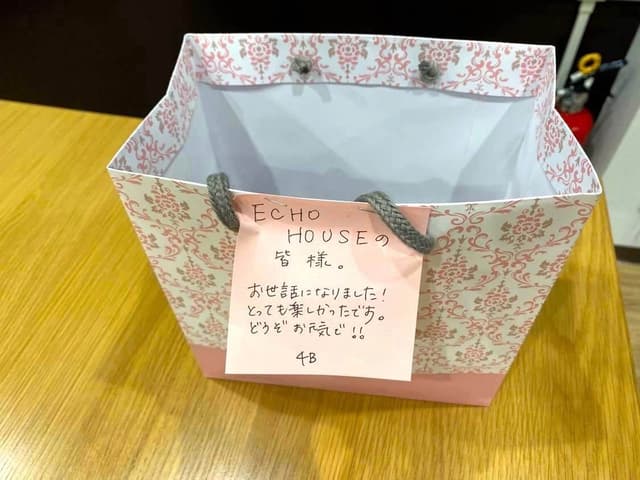 ECHO
HOUSEの
皆様。
お世話になりました!
とっても楽しかったです。
どうぞお元気で!!
4B